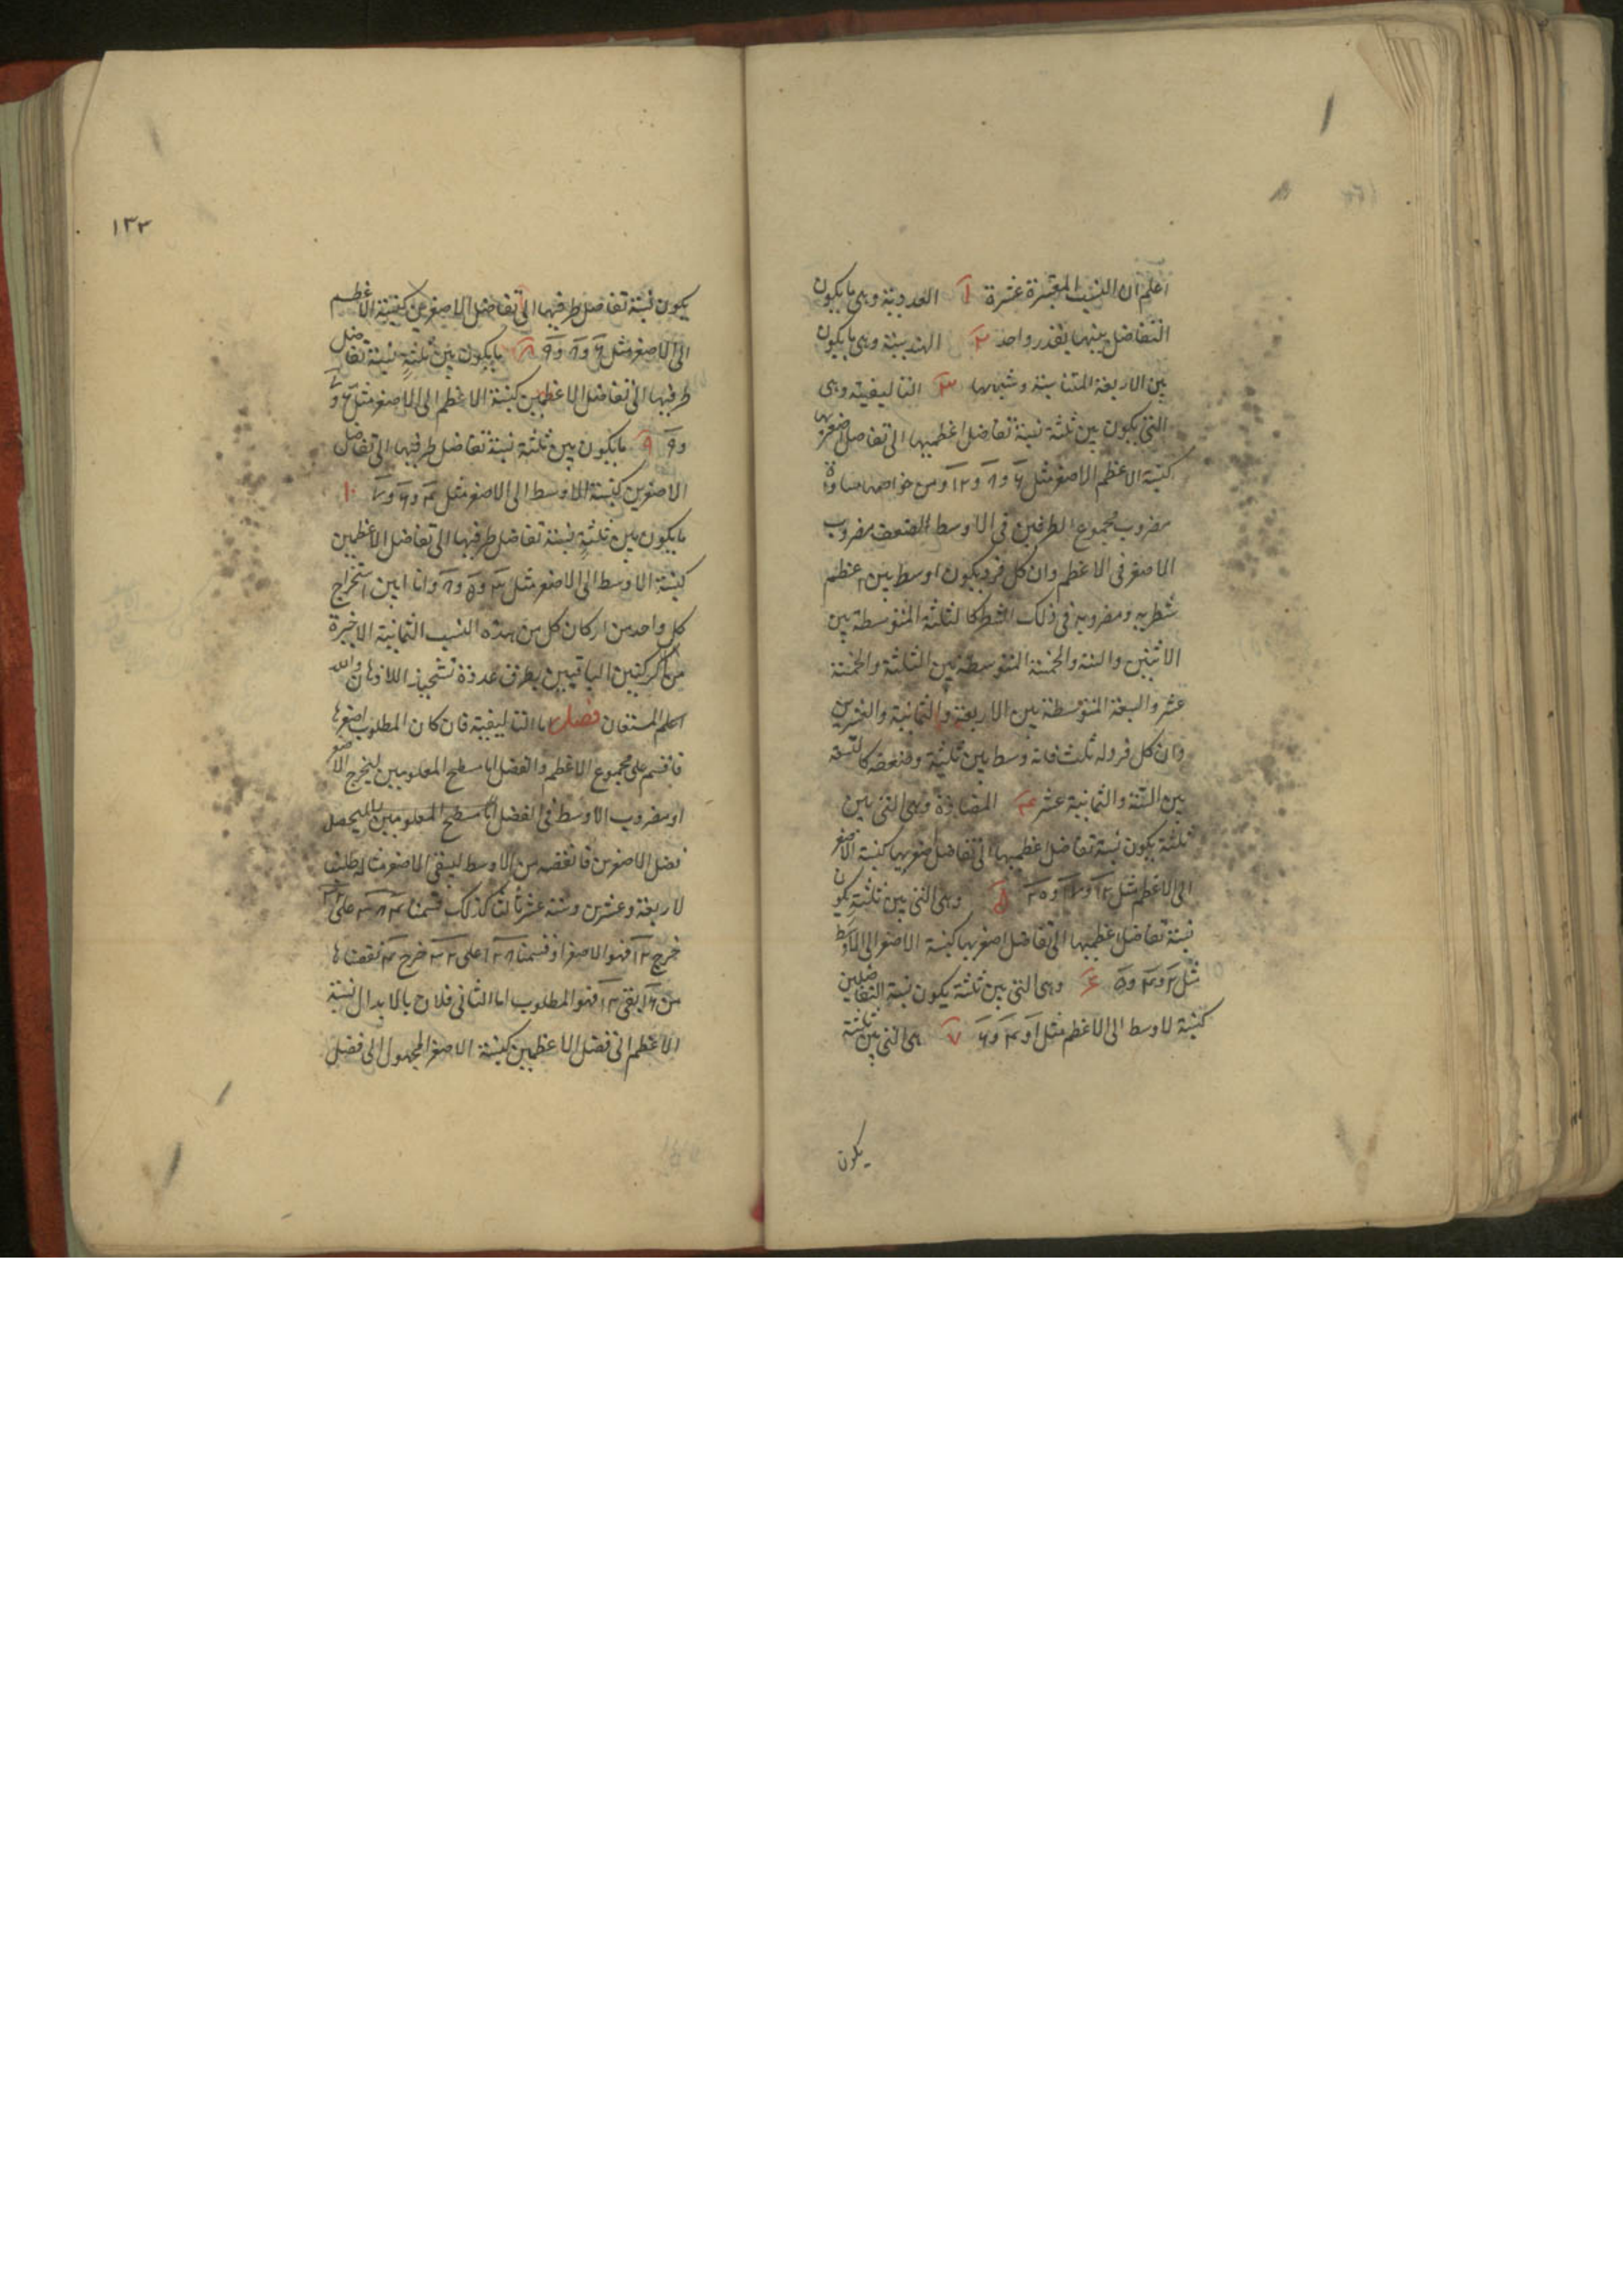 اعلم ان النسب المعتبرة عشرة ١ العددية وهى ما يكون
التفاضل بينها بقدر واحد ٢ الهندسية وهى ما يكون
بين الاربعة المتناسبة وشبهها ٣ التاليفية وهى
التى يكون بين ثلثة نسبة تفاضل اعظميها الى تفاضل اصغريها
كنسبة الاعظم الاصغر مثل ٦ و٨ و١٢ ومن خواصها مساواة
مضروب مجموع الطرفين فى الاوسط لضعف مضروب
الاصغر فى الاعظم وان كل فرد يكون اوسط بين اعظم
شطريه ومضروبه فى ذلك الشطر كالثلثة المتوسطة بين
الاثنين والستة والخمسة المتوسطة بين الثلثة والخمسة
عشر والسبعة المتوسطة بين الاربعة والثمانية والعشرين
وان كل فرد له ثلث فانه وسط بين ثلثيه وضعفه كالتسعة
بين الستة والثمانية عشر ٤ المضادة وهى التى بين
ثلثة يكون نسبة تفاضل اعظميها الى تفاضل اصغريها كنسبة الاصغر
الى الاعظم مثل ٥ وهى التى بين ثلثة يكون
نسبة تفاضل اعظميها الى تفاضل اصغريها كنسبة الاصغر الى الاوسط
مثل ٢ و٤ و٥ ۶ وهى التى بين ثلثة يكون نسبة التفاضلين
كنسبة لاوسط الى الاعظم مثل ١ و٤ و٦ ٧ هى التى بين ثلثة
يكون
١٣٢
يكون نسبة تفاضل طرفيها الى تفاضل الاصغرين كنسبة الاعظم
الى الاصغر مثل ٦ و٨ و٩ ٨ ما يكون بين ثلثة نسبة تفاضل
طرفيها الى تفاضل الاعظمين كنسبة الاعظم الى الاصغر مثل ٦ و٧
و٩ ٩ ما يكون بين ثلثة نسبة تفاضل طرفيها الى تفاضل
الاصغرين كنسبة الاوسط الى الاصغر مثل ٤ و٦ و٧ ١٠
ما يكون بين ثلثة نسبة تفاضل طرفيها الى تفاضل الاعظمين
كنسبة الاوسط الى الاصغر مثل ٣ و٥ و٨ وانا ابين استخراج
كل واحد من اركان كل من هذه النسب الثمانية الاخيرة
من الركنين الباقيين بطرف عدة تشحيذ اللاذهان والله
اعلم المستعان فصل اما التاليفية فان كان المطلوب اصغرها
فاقسم على مجموع الاعظم والفضل اما سطح المعلومين ليخرج الاصغر
او مضروب الاوسط فى الفضل اما سطح المعلومين ليحصل
فضل الاصغرين فانقصه من الاوسط ليبقى الاصغر مثاله طلبنا
لاربعة وعشرين وستة عشر ثالثا كذلك قسمنا ٣٨٤ على ٣٢
خرج ١٢ فهو الاصغر او قسمنا ١٢٨ على ٣٢ خرج ٤ نقصناها
من ١٦ بقى ١٢ فهو المطلوب اما الثانى فلان بالابدال نسبة
الاعظم الى فضل الاعظمين كنسبة الاصغر المجهول الى فضل